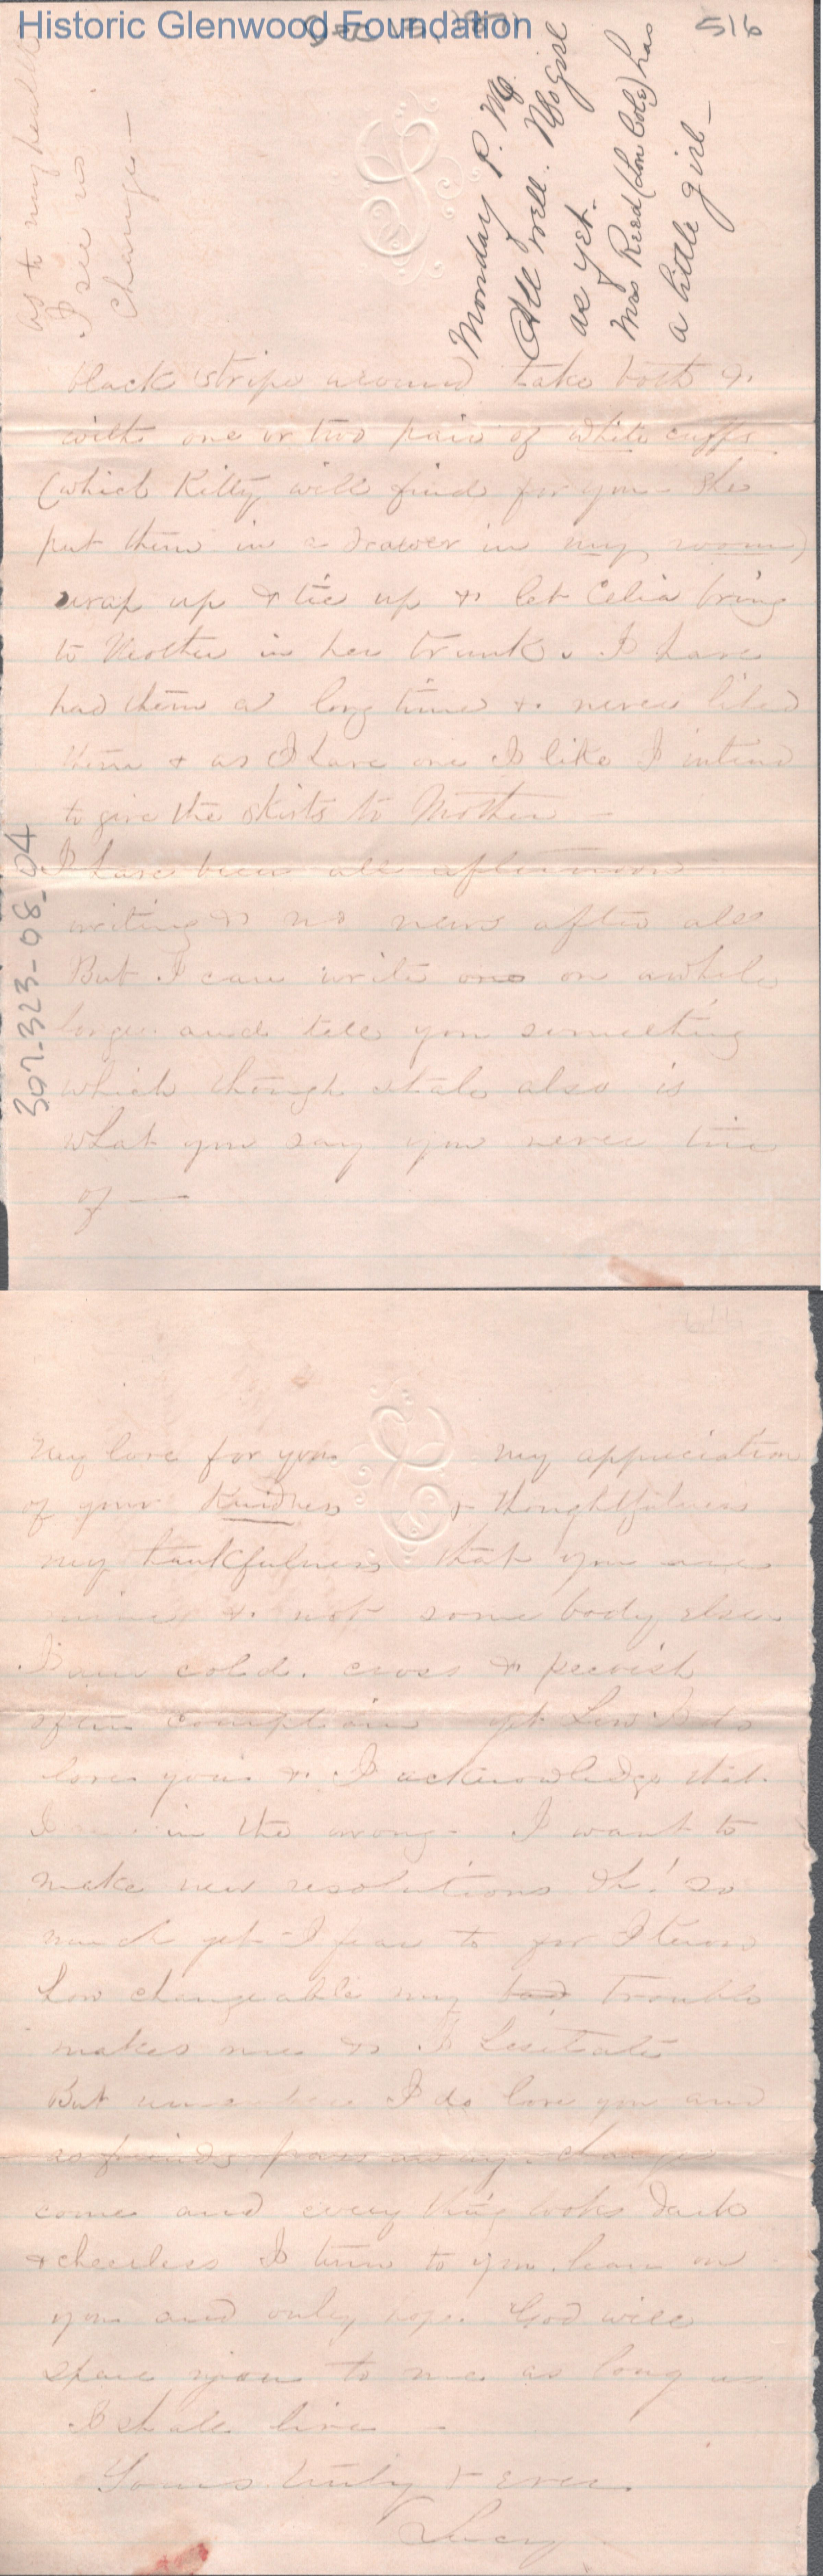 Historic Glenwood Foundation
516
as to my health
I see no
change —
Monday P. M.
All well. No girl
as yet.
Mrs Reed (Lou Cole) has
a little girl —
black stripe around take both &
with one or two pair of white cuffs
(which Kitty will find for you she
put them in a drawer in my room)
wrap up & tie up & let Celia bring
to Mother in her trunk. I have
had them a long time & never liked
them & as I have one I like I intend
to give the skirts to Mother —
I have been all afternoon
writing & no news after all
But I can write on awhile
longer and tell you something
which though stale also is
what you say you never tire
of —
307-323-08-04
My love for you my appreciation
of your kindness & thoughtfulness
my thankfulness that you are
mine & not some body elses
I am cold, cross & peevish
often complain yet
love you & I acknowledge that
I in the wrong — I want to
make new resolutions Oh! so
much yet I fear to for I know
how changeable my trouble
makes me & I hesitate
But I do love you and
as friends pass away, changes
come and every thing looks dark
& cheerless I turn to you, lean on
you and only hope God will
spare you to me as long as
I shall live —
Yours truly & ever
Lucy